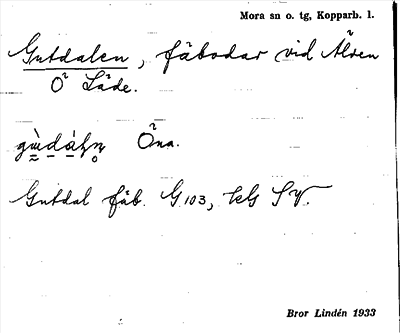 Mora sn o. tg, Kopparb. l.
Gutdalen, fäbodar vid Älven
O Låde.
Öna.
Gutdal fäb. G 103, kbl SV.
Bror Lindén 1933